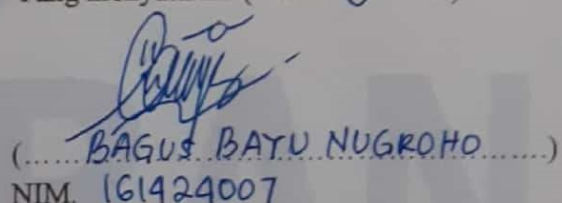 (......BAGUS BAYU NUGROHO.......)
NIM. 161424007